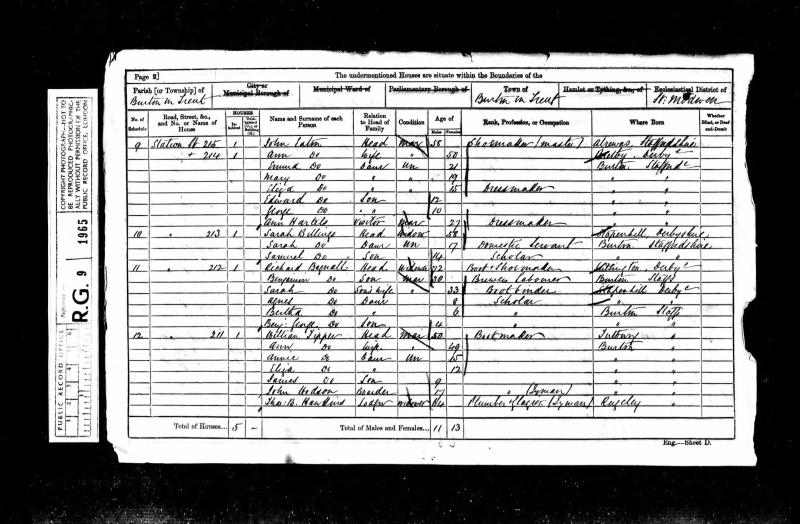 COPYRIGHT PHOTOGRAPH—NOT TO BE REPRODUCED PHOTOGRAPHICALLY WITHOUT PERMISSION OF THE PUBLIC RECORD OFFICE, LONDON
PUBLIC RECORD OFFICE
Reference
R.G. 9 / 1965
Page 2]
The undermentioned Houses are situate within the Boundaries of the
Parish [or Township] of
Burton on Trent
City or Municipal Borough of
Municipal Ward of
Parliamentary Borough of
Town of
Burton on Trent
Hamlet or Tything, &c., of
Ecclesiastical District of
St. Modwen
No. of Schedule
Road, Street, &c., and No. or Name of House
HOUSES
Name and Surname of each Person
Relation to Head of Family
Condition
Age of
Males
Females
Rank, Profession, or Occupation
Where Born
Whether Blind, or Deaf-and-Dumb
9 Station St 215 1 John Eaton Head Mar 58 Shoemaker (master) Alrewas Staffordshire
+ 214 1 Ann Do Wife " 50 Derby
Emma Do Daur Un 21 Burton Staffordsh
Mary Do " " 19 " "
Eliza Do " " 15 Dressmaker " "
Edward Do Son 12 " "
George Do " " 10 " "
Ann Hartels Visitor Mar 27 Dressmaker " "
10 " 213 1 Sarah Billings Head Widow 58 Stapenhill, Derbyshire
Sarah Do Daur Un 17 Domestic Servant Burton Staffordshire
Samuel Do Son 14 Scholar " "
11 " 212 1 Richard Bagnall Head Widower 72 Boot & Shoemaker Willington Derby
Benjamin Do Son Mar 30 Brewers Labourer Burton Staffs
Sarah Do Son's wife " 33 Bootbinder Stapenhill Derby
Agnes Do Daur 8 Scholar "
Bertha Do " 6 " Burton Staffs
Benj. George Do Son 4 " "
12 " 211 1 William Tipper Head Mar 50 Bootmaker Tutbury "
Ann Do Wife " 49 Burton "
Annie Do Daur Un 15 " "
Eliza Do " 12 " "
James Do Son 9 " "
John Hodson Boarder 17 " "
Thos. B. Hawkins Lodger Widower 64 Plumber Glazier Rugeley "
Total of Houses... 5 –
Total of Males and Females... 11 13
Eng.—Sheet D.